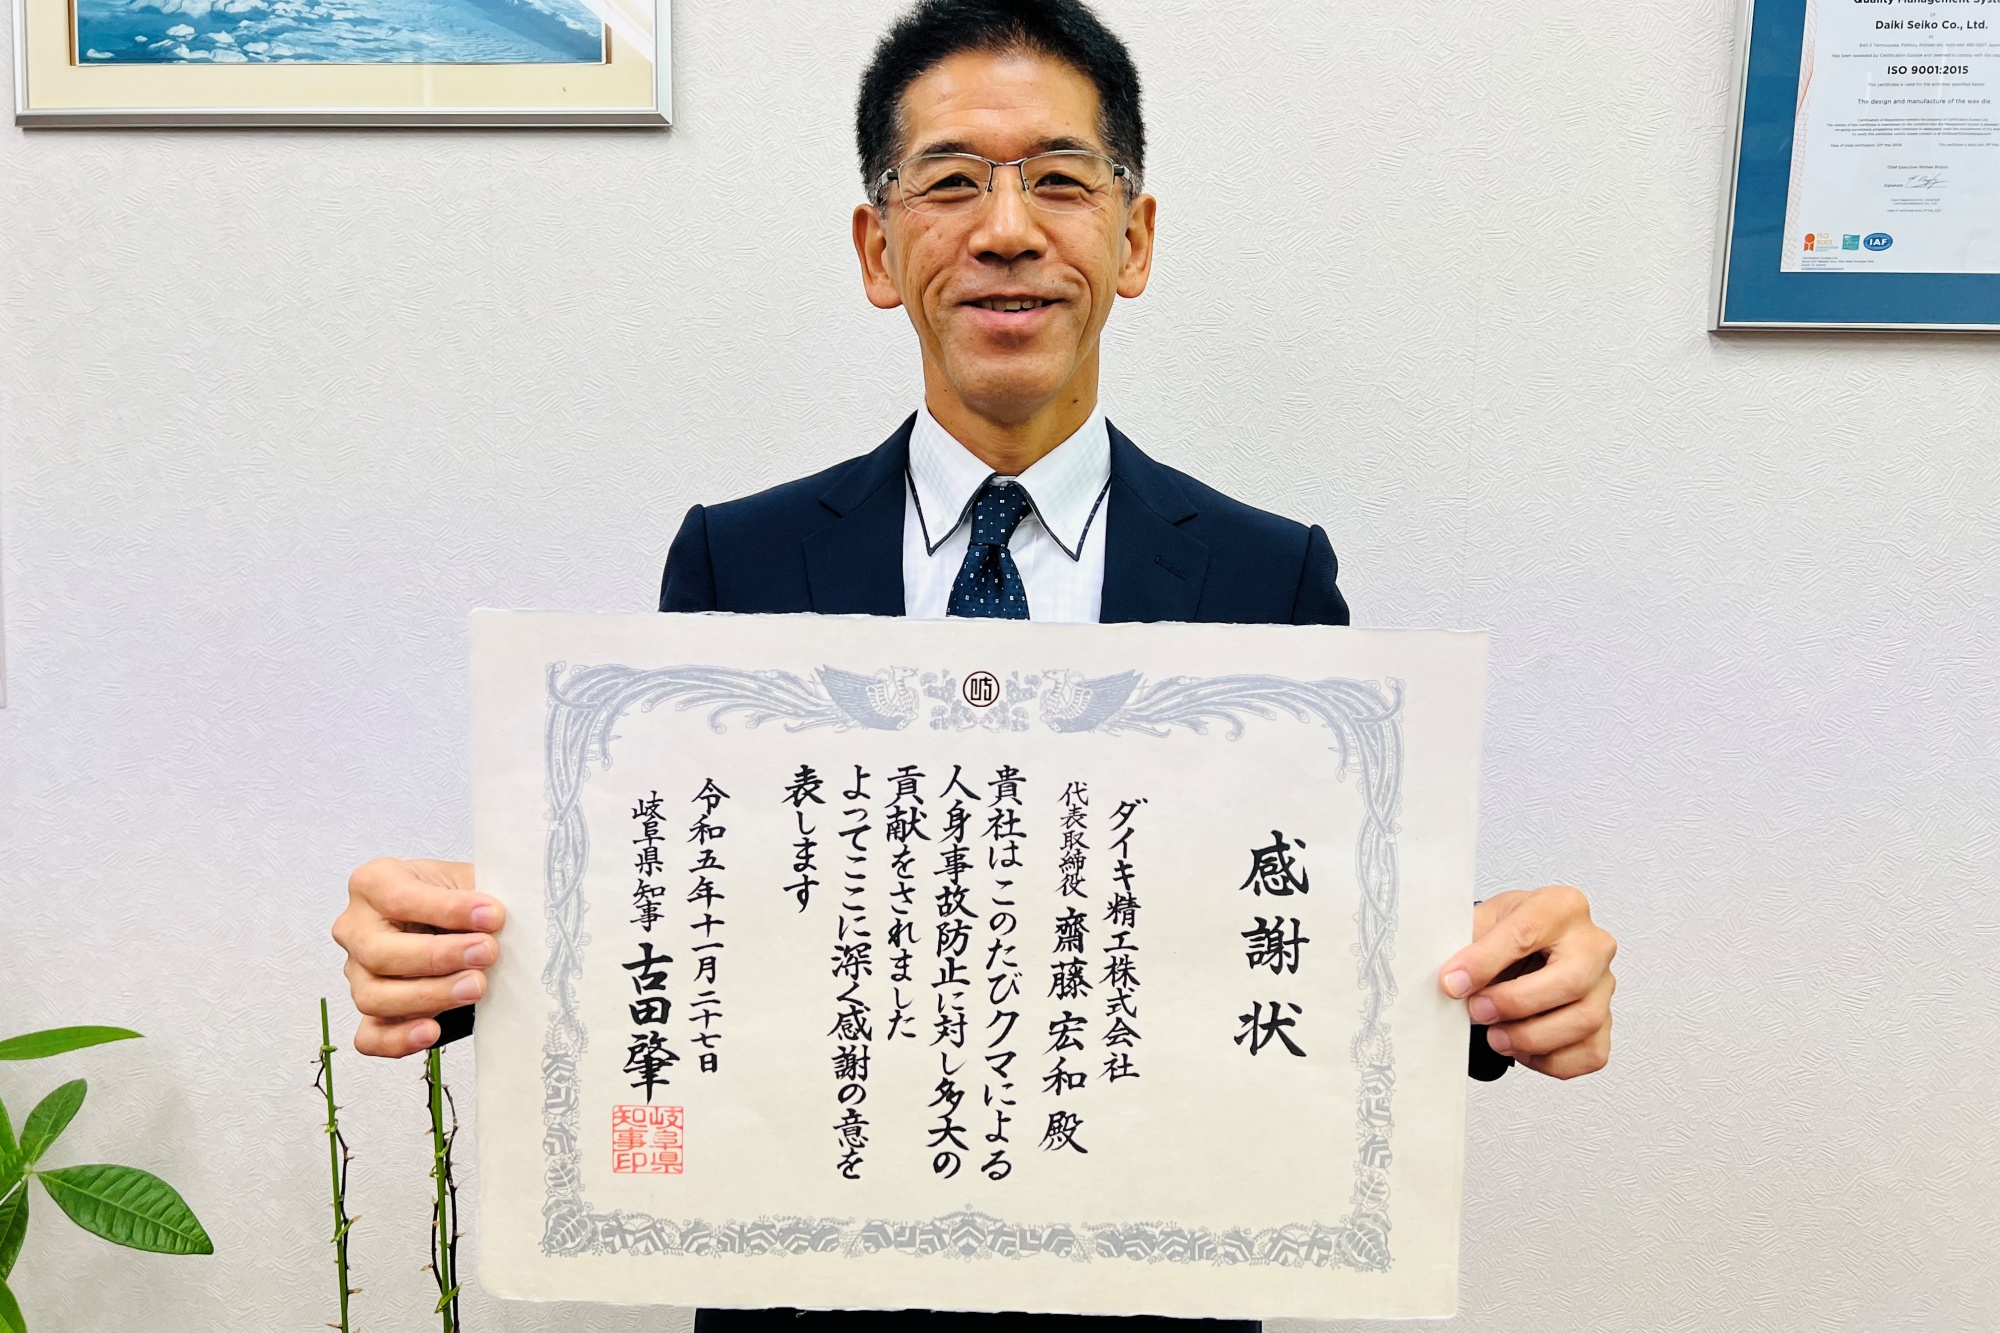 感謝状
ダイキ精工株式会社
代表取締役 齋藤宏和殿
貴社はこのたびクマによる
人身事故防止に対し多大の
貢献をされました
よってここに深く感謝の意を
表します
令和五年十一月二十七日
岐阜県知事 古田肇
岐阜県
知事印
Quality Management Syst
Daiki Seiko Co., Ltd.
ISO 9001:2015
This certificate is valid for the activities specified below:
The design and manufacture of the wax die
Signature:
ISO
9001
IAF